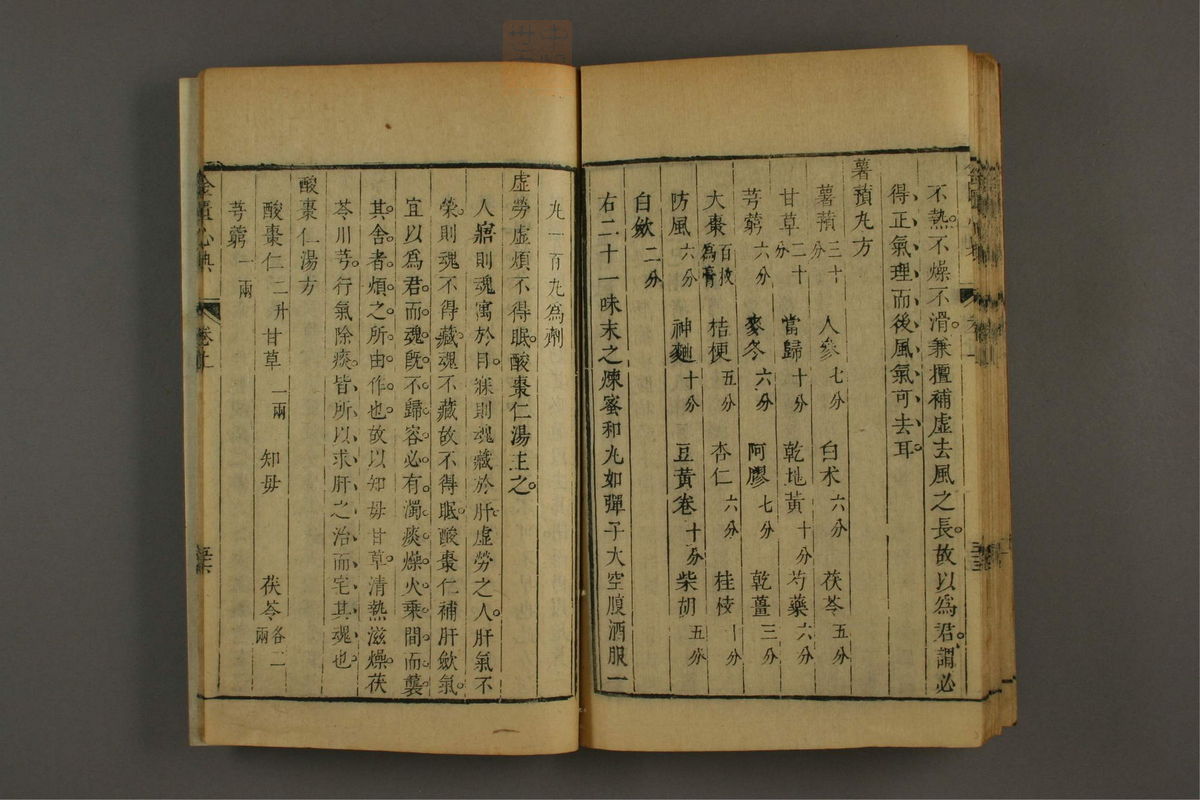 不熱不燥不滑兼擅補虛去風之長故以爲君謂必
得正氣理而後風氣可去耳
薯蕷丸方
薯蕷三十分 人參七分 白术六分 茯苓五分
甘草二十分 當歸十分 乾地黃十分 芍藥六分
芎藭六分 麥冬六分 阿膠七分 乾薑三分
大棗百枚爲膏 桔梗五分 杏仁六分 桂枝十分
防風六分 神麯十分 豆黃卷十分 柴胡五分
白斂二分
右二十一味末之煉蜜和丸如彈子大空腹酒服一
丸一百丸爲劑
虛勞虛煩不得眠酸棗仁湯主之
人寤則魂寓於目寐則魂藏於肝虛勞之人肝氣不
榮則魂不得藏魂不藏故不得眠酸棗仁補肝斂氣
宜以爲君而魂旣不歸容必有濁痰燥火乘間而襲
其舍者煩之所由作也故以知母甘草清熱滋燥茯
苓川芎行氣除痰皆所以求肝之治而宅其魂也
酸棗仁湯方
酸棗仁二升 甘草一兩 知母 茯苓各二兩
芎藭一兩
金匱心典 卷上